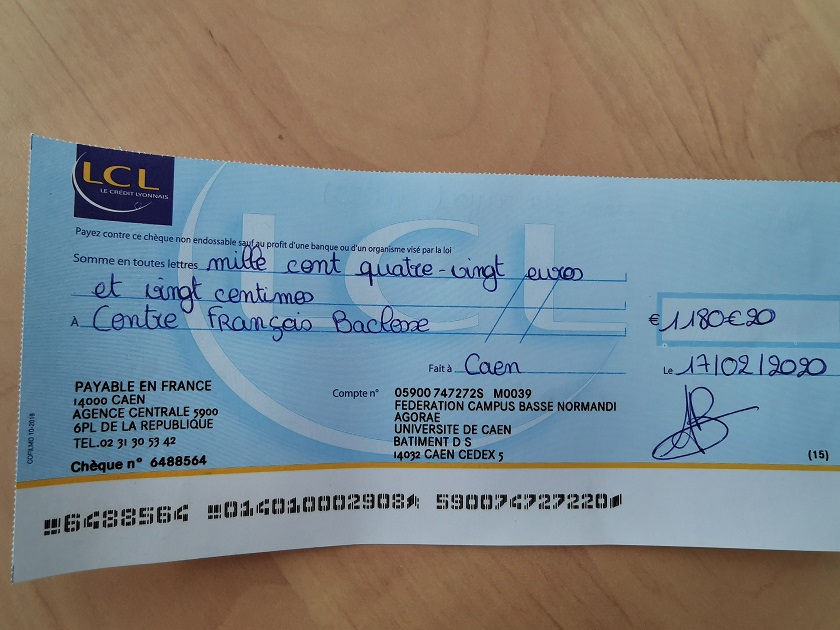 LCL
LE CRÉDIT LYONNAIS
Payez contre ce chèque non endossable sauf au profit d'une banque ou d'un organisme visé par la loi
Somme en toutes lettres mille cent quatre-vingt euros
et vingt centimes
À Centre François Baclesse
€ 1180€20
Fait à Caen
Le 17/02/2020
PAYABLE EN FRANCE
14000 CAEN
AGENCE CENTRALE 5900
6PL DE LA REPUBLIQUE
TEL.02 31 30 53 42
Chèque n° 6488564
Compte n° 05900 747272S M0039
FEDERATION CAMPUS BASSE NORMANDI
AGORAE
UNIVERSITE DE CAEN
BATIMENT D S
14032 CAEN CEDEX 5
(15)
LCL
6488564 014010002908 590074727220